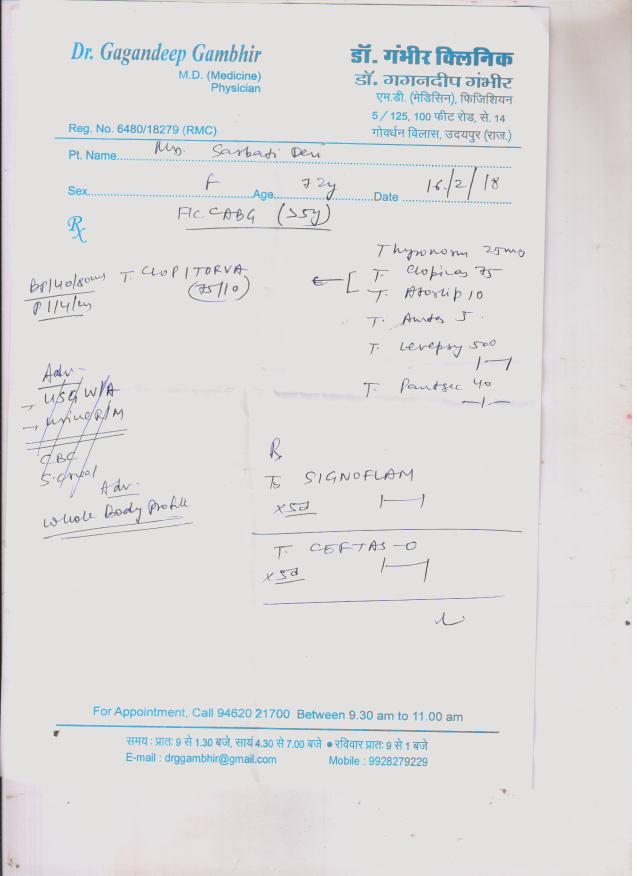 Dr. Gagandeep Gambhir
M.D. (Medicine)
Physician
Reg. No. 6480/18279 (RMC)
डॉ. गंभीर क्लिनिक
डॉ. गगनदीप गंभीर
एम.डी. (मेडिसिन), फिजिशियन
5/125, 100 फीट रोड, से. 14
गोवर्धन विलास, उदयपुर (राज.)
Pt. Name Mrs. Sarbati Devi
Sex F Age 72y Date 16/2/18
Rx
CABG (>5y)
BP 140/80
T. CLOPITORVA
(75/10)
Thyronorm 25mg
T. Clopivas 75
T. Atorlip 10
T. 5
T. Levepsy 500
T. Pantsec 40
Adv-
→ USG W/A
→ Urine R/M
CBC
S. Creat
Adv.
Whole Body Profile
SIGNOFLAM
x5d
T. CEFTAS-O
x5d
For Appointment, Call 94620 21700 Between 9.30 am to 11.00 am
समय : प्रातः 9 से 1.30 बजे, सायं 4.30 से 7.00 बजे ● रविवार प्रातः 9 से 1 बजे
E-mail : drggambhir@gmail.com Mobile : 9928279229